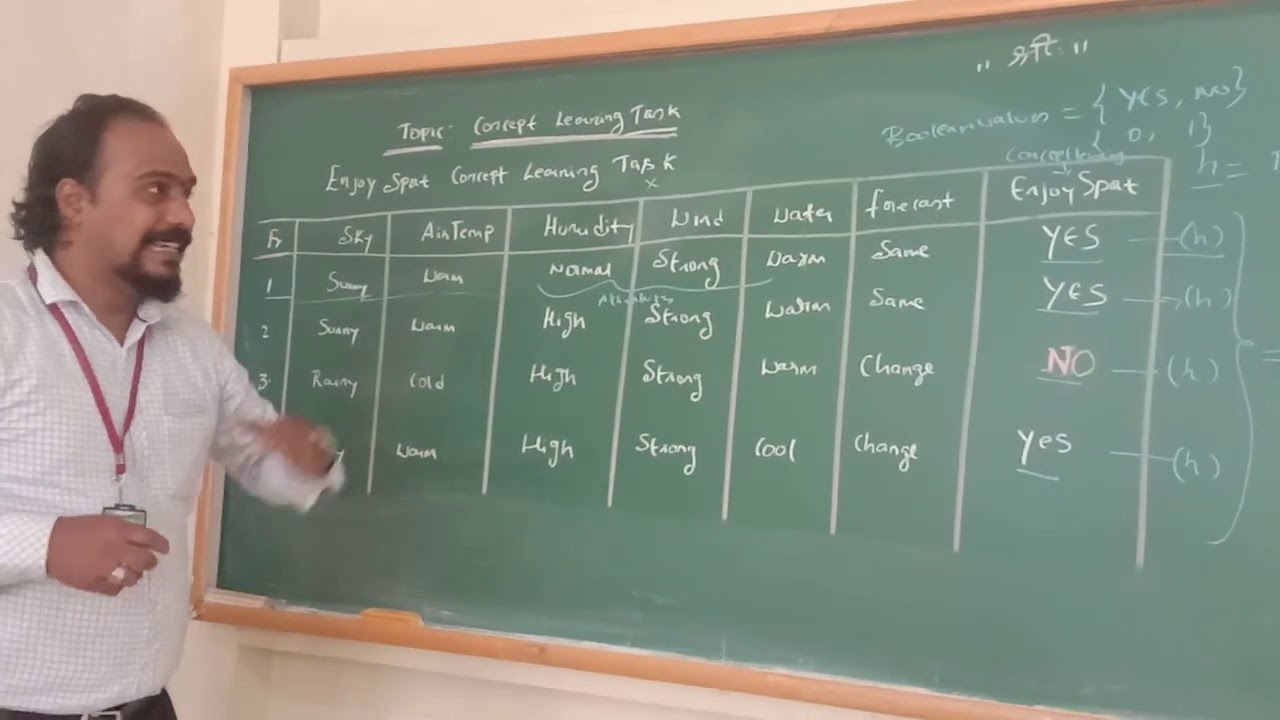 " श्री: "
Topic: Concept Learning Task
Boolean values = { YES, NO}
{ 0, 1}
Enjoy Spat Concept Learning Task
x
Concept learning
h =
Ex Sky AirTemp Humidity Wind Water forecast Enjoy Spat
1 Sunny Warm Normal Strong Warm Same YES (h)
Attributes
2 Sunny Warm High Strong Warm Same YES (h)
3. Rainy Cold High Strong Warm Change NO (h)
y Warm High Strong Cool Change Yes (h)
=